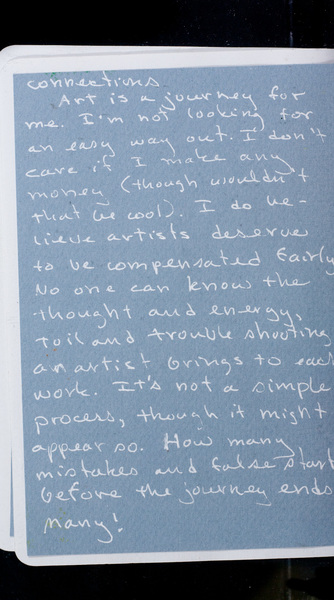 connections
Art is a journey for
me. I'm not looking for
an easy way out. I don't
care if I make any
money (though wouldn't
that be cool). I do be-
lieve artists deserve
to be compensated fairly
No one can know the
thought and energy,
toil and trouble shooting
an artist brings to each
work. It's not a simple
process, though it might
appear so. How many
mistakes and false start
before the journey ends
Many!